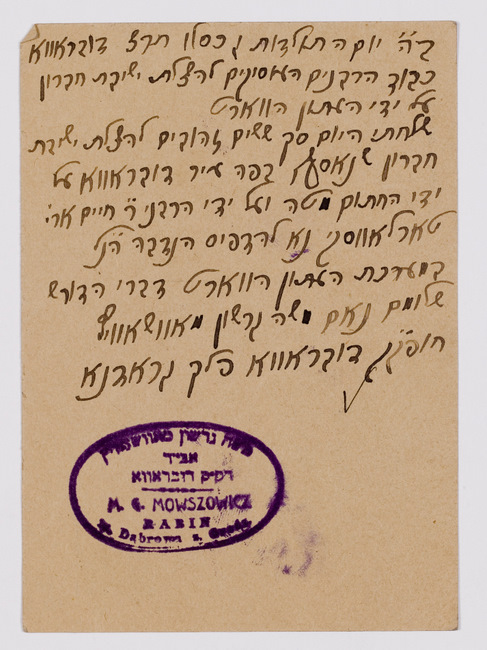 ב״ה יום ה תולדות ג כסלו תרצ דובראווא
כבוד הרבנים העוסקים להצלת ישיבת חברון
על ידי העתון הווארט
שלחתי היום סך ששים זהובים להצלת ישיבת
חברון שנאסף בפה עיר דובראווא על
ידי החתום מטה ועל ידי הרבני ר׳ חיים ארי׳
טארלאווסקי נא להדפיס הנדבה הנ״ל
במערכת העתון הווארט דברי הדורש
שלומם נאם משה גרשון מאוושאוויץ
חופ״ק דובראווא פלך גראדנא
משה גרשון מאוושאוויץ
אב״ד
דק״ק דובראווא
M. G. MOWSZOWICZ
RABIN
Dąbrowa